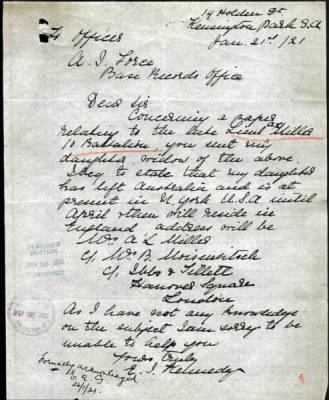 14 Holden St
Kensington Park S.A
Jan. 21st /21
Officer
A. I. Force
Base Records Office
Dear Sir
Concerning a paper
relating to the late Lieut Miller
10 Battalion, you sent my
daughter widow of the above.
I beg to state that my daughter
has left Australia and is at
present in N. York U.S.A until
April when will reside in
England address will be
Mrs A L Miller
c/. Mr B. Moiseiwitsch
c/. Ibbs & Tillett
Hanover Square
London
As I have not any knowledge
on the subject I am sorry to be
unable to help you
Yours truly
E. J. Kennedy
Formerly acknowledged